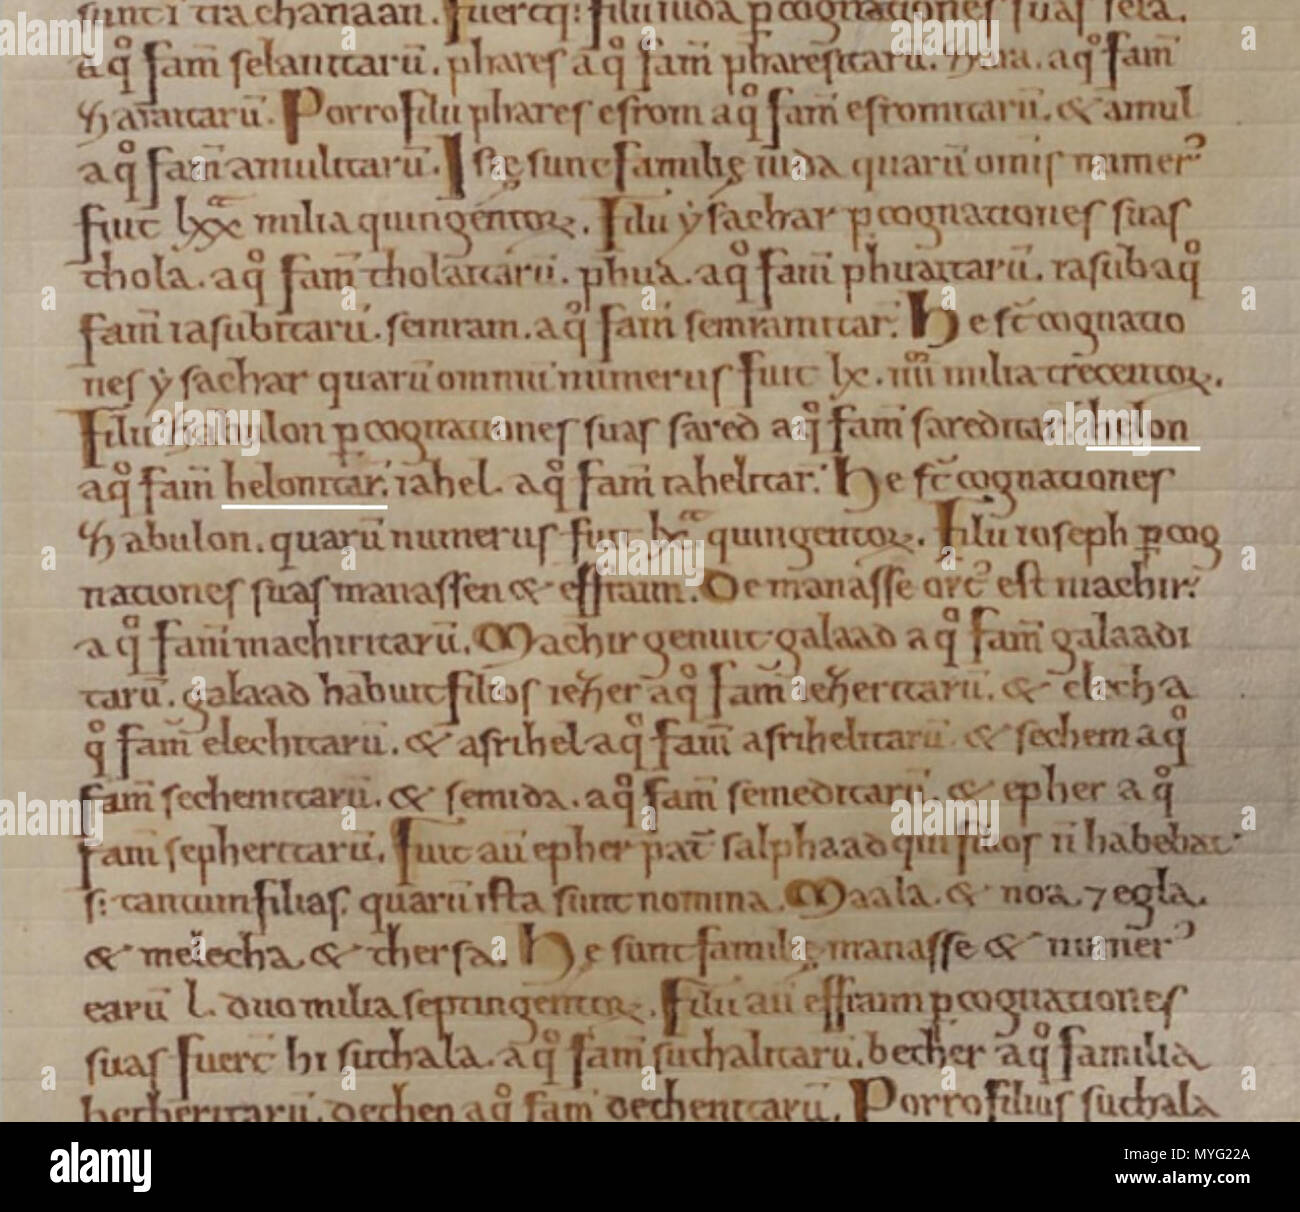 sunt i tra chanaan. fuerq: filii iuda p cognationes suas sela.
a q̊ fam̄ selanitarū. phares a q̊ fam̄ pharesitarū. zara. a q̊ fam̄
zaraitarū. Porro filii phares esrom a q̊ fam̄ esromitarū. & amul
a q̊ fam̄ amulitarū. Istę sunt familię iuda quarū omīs numer᾽
fuit lxx milia quingentoꝝ. Filii ẏsachar p cognationes suas
thola. a q̊ fam̄ tholaitarū. phua. a q̊ fam̄ phuaitarū. iasub a q̊
fam̄ iasubitarū. semram. a q̊ fam̄ semramitar᾽. He st̄ cognatio
nes ẏsachar quarū omniū numerus fuit lx. iiii milia trecentoꝝ.
Filii zabulon p cognationes suas sared a q̊ fam̄ sareditar᾽. helon
a q̊ fam̄ helonitar᾽. iahel. a q̊ fam̄ iahelitar᾽. He st̄ cognationes
zabulon. quarū numerus fuit lx quingentoꝝ. Filii ioseph p cog
nationes suas manassen & effraim. De manasse ort᾽ est machir᾽
a q̊ fam̄ machiritarū. Machir genuit galaad a q̊ fam̄ galaadi
tarū. galaad habuit filios iezer a q̊ fam̄ iezeritarū. & elech a
q̊ fam̄ elechitarū. & asrihel a q̊ fam̄ asrihelitarū. & sechem a q̊
fam̄ sechemitarū. & semida. a q̊ fam̄ semeditarū. & epher a q̊
fam̄ sepheritarū. Fuit aū epher pat̄ salphaad qui filios n̄ habebat
s: tantum filias. quarū ista sunt nomina. Maala. & noa. ⁊ egla.
& melecha & thersa. He sunt familię manasse & numer᾽
earū l. duo milia septingentoꝝ. Filii aū effraim p cognationes
suas fuert̄ hi suthala. a q̊ fam̄ suthalitarū. becher a q̊ familia
becheritarū. dethen a q̊ fam̄ dethenitarū. Porro filius suthala
alamy
Image ID: MYG22A
www.alamy.com